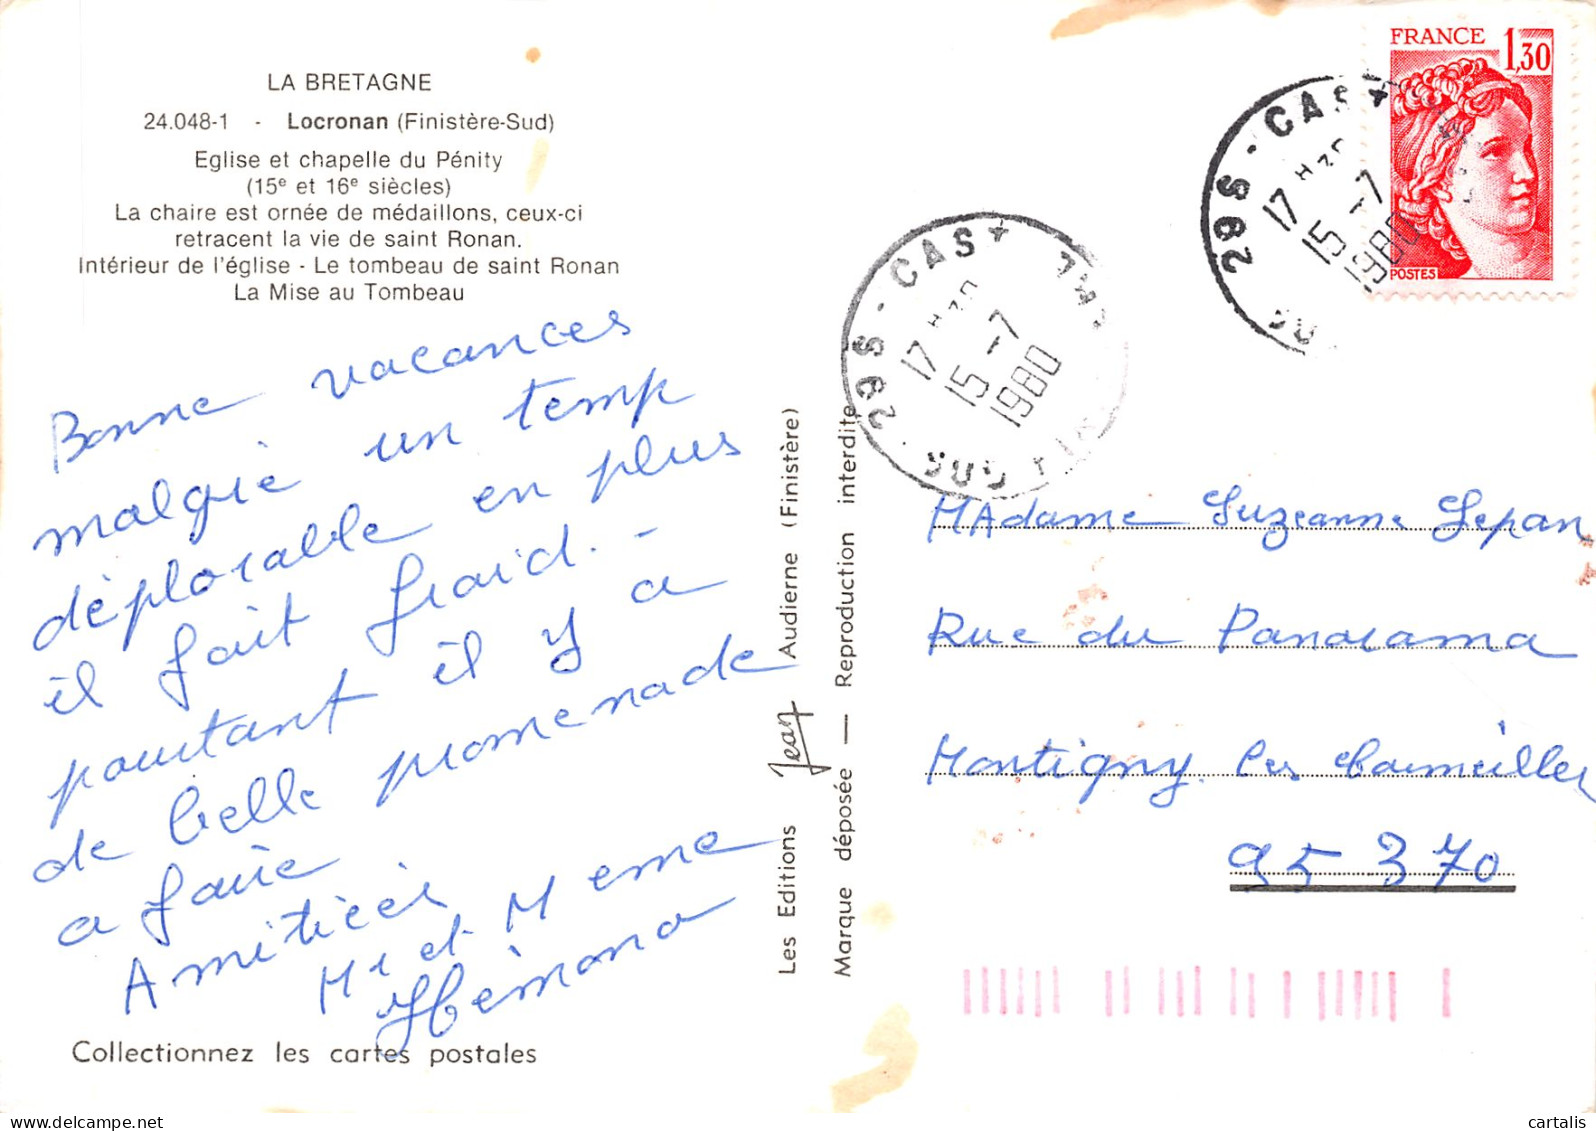 LA BRETAGNE
24.048-1 - Locronan (Finistère-Sud)
Eglise et chapelle du Pénity
(15e et 16e siècles)
La chaire est ornée de médaillons, ceux-ci
retracent la vie de saint Ronan.
Intérieur de l'église - Le tombeau de saint Ronan
La Mise au Tombeau
Bonne vacances
malgré un temp
déplorable en plus
il fait fraid. -
pourtant il y a
de belle promenade
a faire
Amitiées
Mr et M eme
Hémono
Collectionnez les cartes postales
Les Editions Jean Audierne (Finistère)
Marque déposée — Reproduction interdite
29S - CAST
17 H30
15 -7
1980
29S - CAST
17 H30
15 -7
1980
FRANCE 1,30
POSTES
MAdame Suzeanne Lepan
Rue du Panorama
Montigny les Cormeilles
95 370
www.delcampe.net
cartalis